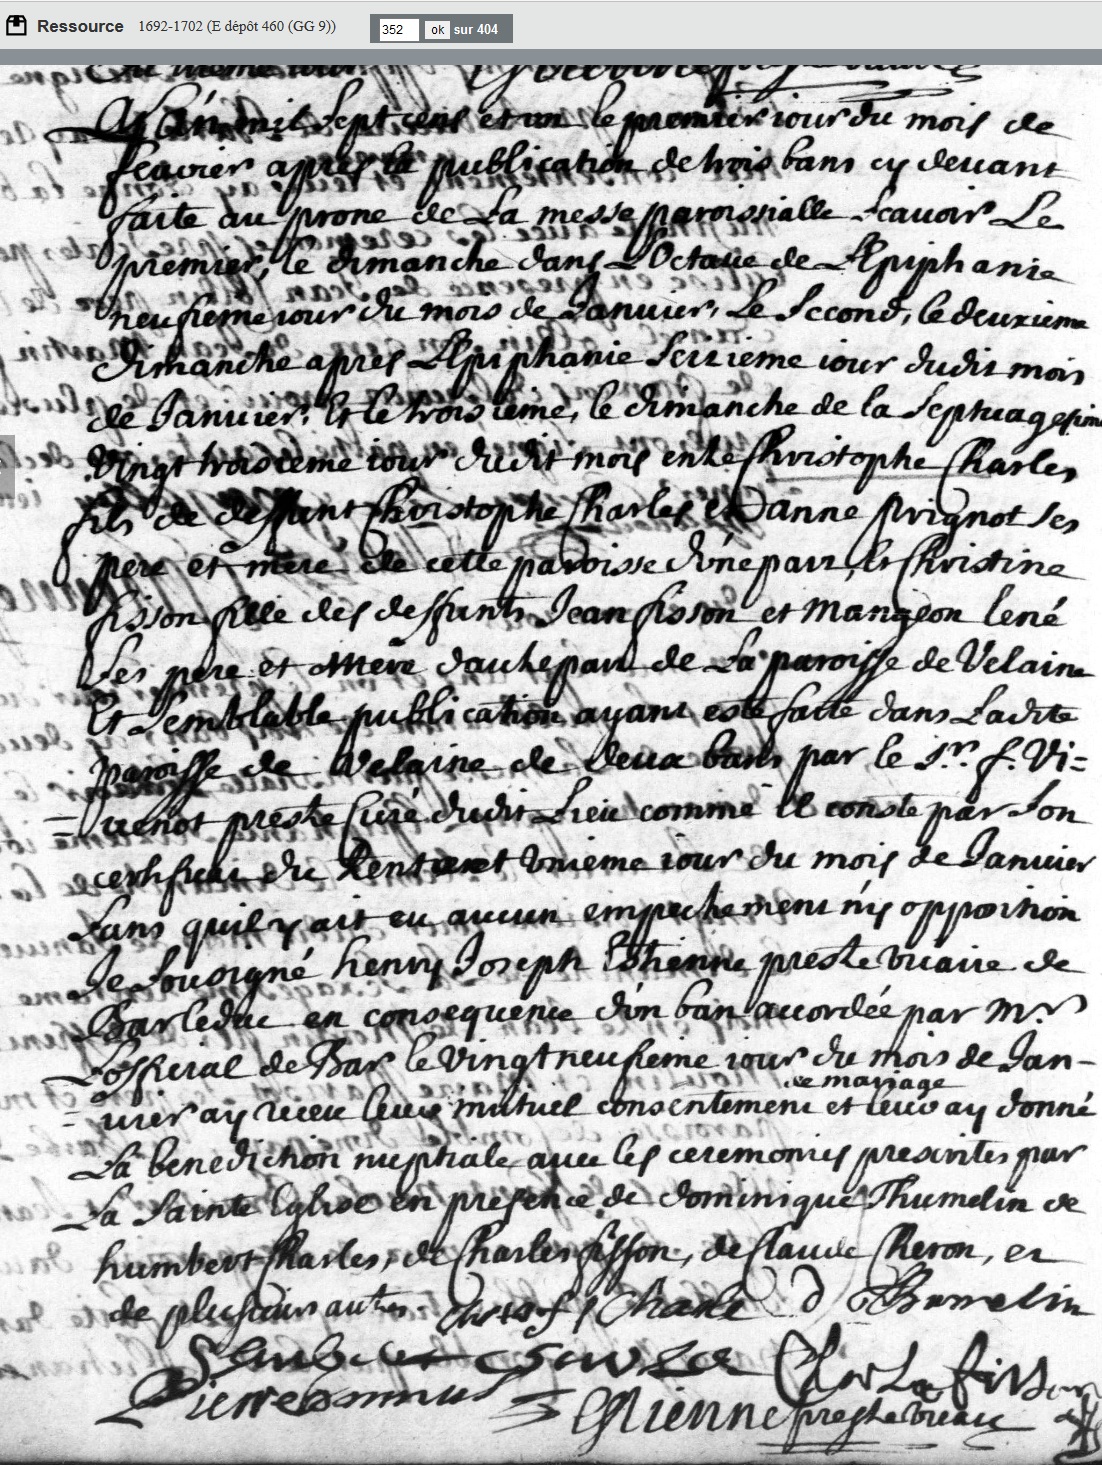 Ressource 1692-1702 (E dépôt 460 (GG 9)) 352 ok sur 404
L'an mil sept cens et un le premier iour du mois de
feuvier apres la publication de trois bans cy deuant
faite au prone de La messe paroissialle Scauoir Le
premier, le dimanche dans L'Octaue de L'Epiphanie
neufieme iour du mois de Januier, Le Second, le deuxieme
dimanche apres L'Epiphanie Seizieme iour dudit mois
de Januier, Et le troisieme, le dimanche de la Septuagesime
Vingt troisieme iour dudit mois entre Christophe Charles
fils de deffunt Christophe Charles et Danne prignot ses
pere et mere de cette paroisse d'une part, Et Christine
fisson fille des deffunts Jean fisson et Mangeon lené
Ses pere et Mere dautre part de La paroisse de Velaine
Et Semblable publication ayant esté faite dans Ladite
paroisse de Velaine de deux bans par le Sr. f. Vi=
=uenot prestre Curé dudit Lieu comme il conste par Son
certificat du trente et unieme iour du mois de Januier
Sans quil y ait eu aucun empechement ny opposition
Je Sousigné henry Joseph Estienne prestre vicaire de
Barleduc en consequence d'un ban accordée par Mr
L'official de Bar le Vingt neufieme iour du mois de Jan-
=uier ay receu leur mutuel consentement
de mariage
et leur ay donné
La benediction nuptiale auec les ceremonies prescrites par
La Sainte Eglise en presence de dominique Thumelin de
humbert Charles, de Charles fisson, de Claude Cheron, et
de plusieurs autres. Christofle Charle D Thumelin
Charle fisson
Estienne prestre vicaire